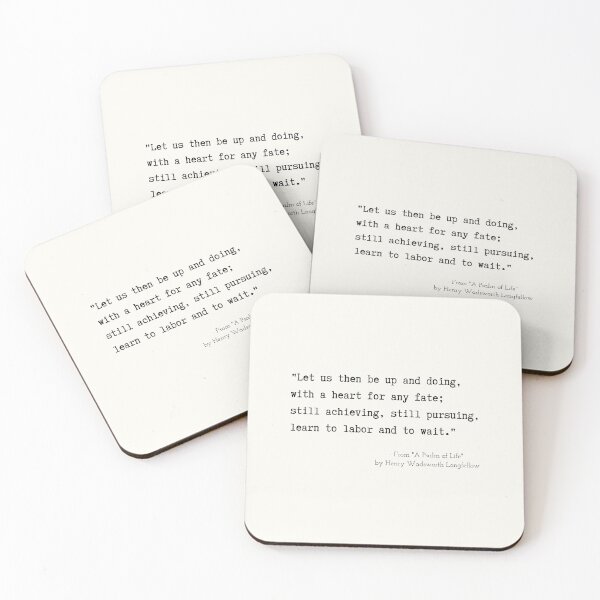 "Let us then be up and doing,
with a heart for any fate;
still achieving, still pursuing,
learn to labor and to wait."
From "A Psalm of Life"
by Henry Wadsworth Longfellow
"Let us then be up and doing,
with a heart for any fate;
still achieving, still pursuing,
learn to labor and to wait."
From "A Psalm of Life"
by Henry Wadsworth Longfellow
"Let us then be up and doing,
with a heart for any fate;
still achieving, still pursuing,
learn to labor and to wait."
From "A
by Henry Wads
"Let us then be up and doing,
with a heart for any fate;
still achieving, still pursuing,
learn to labor and to wait."
From "A Psalm of Life"
by Henry Wadsworth Longfellow